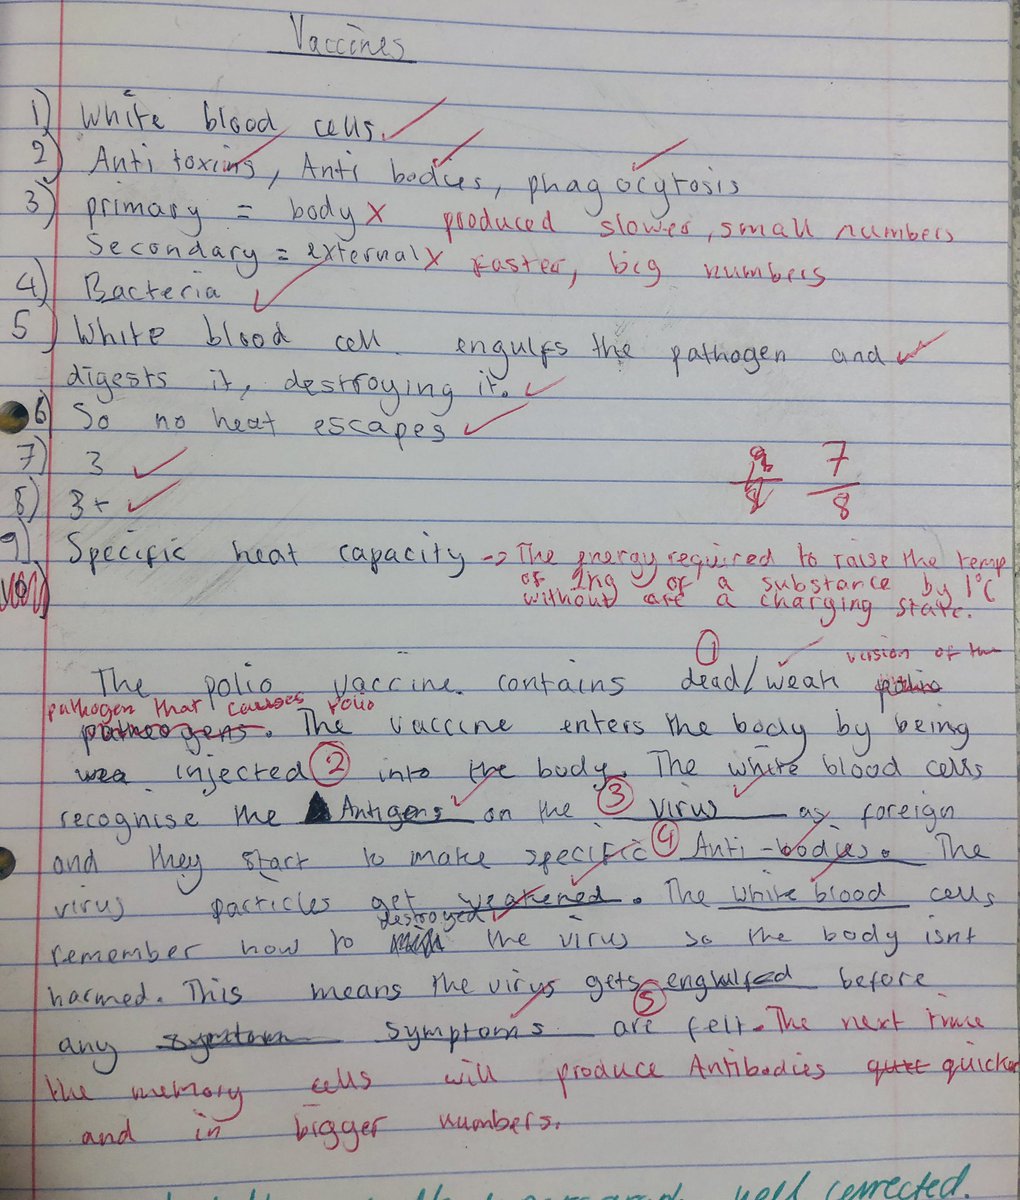 Vaccines
1) White blood cells.
2) Anti toxins, Anti bodies, phagocytosis
3) primary = body X produced slower, small numbers
Secondary = external X Faster, big numbers
4) Bacteria
5) White blood cell engulfs the pathogen and
digests it, destroying it.
6) So no heat escapes
7) 3
7
8
8) 3+
9) Specific heat capacity -> The energy required to raise the temp
of 1kg of a substance by 1°C
without are a charging state.
1
version of the
The polio vaccine contains dead/weak
pathogen that causes polio
pathogens. The vaccine enters the body by being
injected 2 into the body. The white blood cells
recognise the Antigens on the 3 virus as foreign
and they start to make specific 4 Anti-bodies. The
virus particles get weakened. The white blood cells
destroyed
remember how to the virus so the body isnt
harmed. This means the virus gets engulfed before
5
any symptoms are felt. The next time
the memory cells will produce Antibodies quicker
and in bigger numbers.
well corrected.